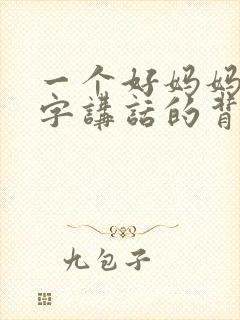 一个好妈妈
字講話的背
九包子